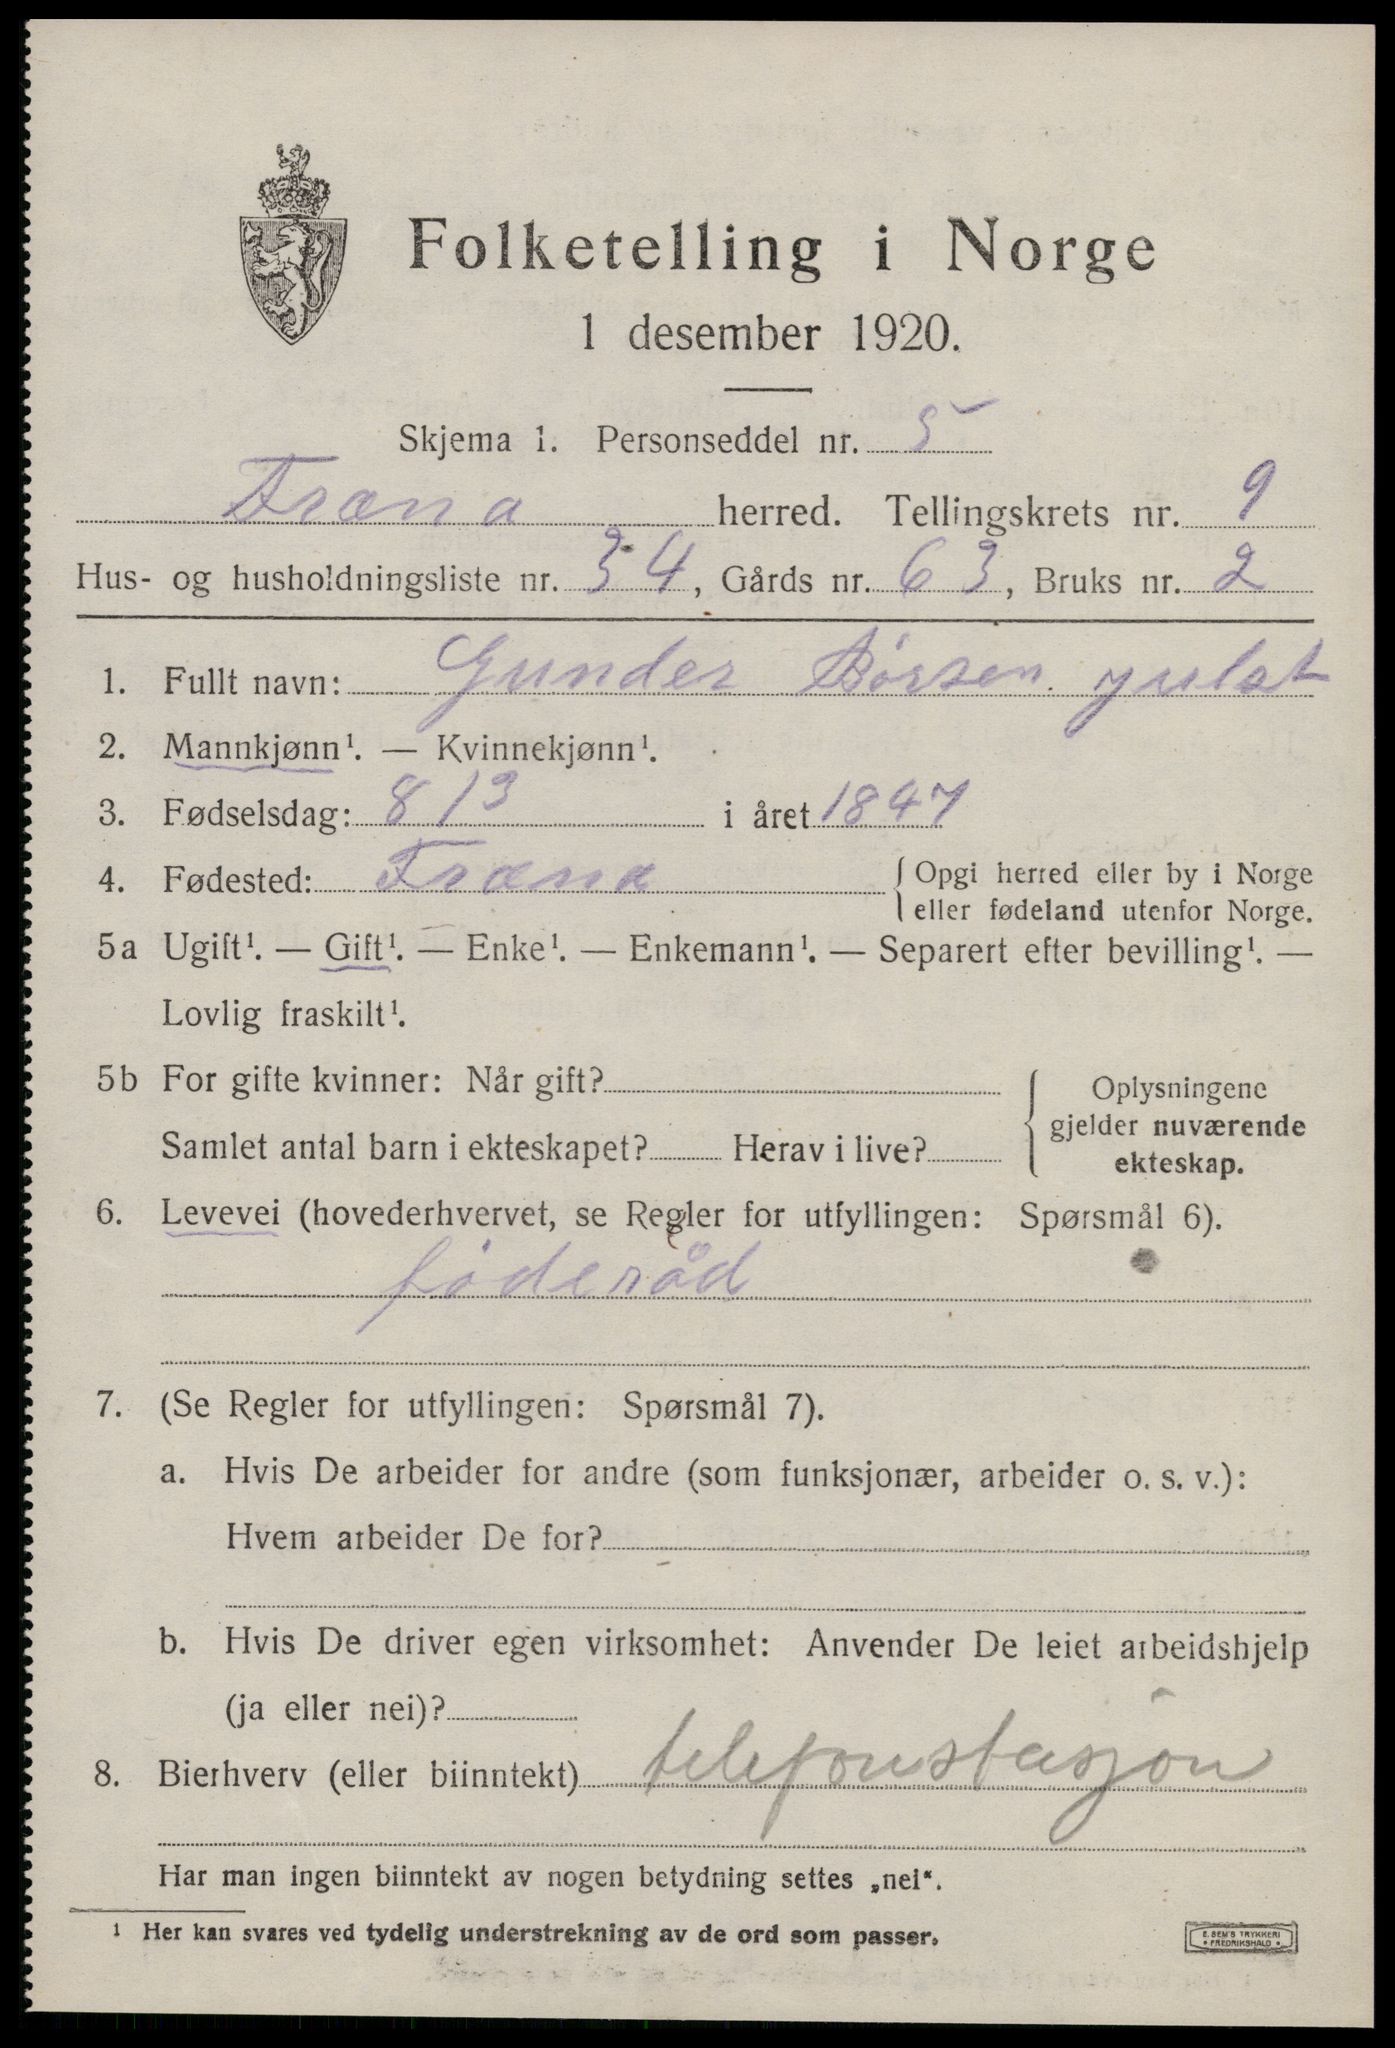 Folketelling i Norge
1 desember 1920.
Skjema 1. Personseddel nr. 5
Fræna herred. Tellingskrets nr. 9
Hus- og husholdningsliste nr. 34, Gårds nr. 63, Bruks nr. 2
1. Fullt navn: Gunder Børsen. Julset
2. Mannkjønn¹. — Kvinnekjønn¹.
3. Fødselsdag: 8/3 i året 1847
4. Fødested: Fræna { Opgi herred eller by i Norge
eller fødeland utenfor Norge.
5a Ugift¹. — Gift¹. — Enke¹. — Enkemann¹. — Separert efter bevilling¹. —
Lovlig fraskilt¹.
5b For gifte kvinner: Når gift? { Oplysningene
gjelder nuværende
Samlet antal barn i ekteskapet? Herav i live? ekteskap.
6. Levevei (hovederhvervet, se Regler for utfyllingen: Spørsmål 6).
føderåd
7. (Se Regler for utfyllingen: Spørsmål 7).
a. Hvis De arbeider for andre (som funksjonær, arbeider o. s. v.):
Hvem arbeider De for?
b. Hvis De driver egen virksomhet: Anvender De leiet arbeidshjelp
(ja eller nei)?
8. Bierhverv (eller biinntekt) telefonstasjon
Har man ingen biinntekt av nogen betydning settes „nei“.
¹ Her kan svares ved tydelig understrekning av de ord som passer.
E. SEM'S TRYKKERI
• FREDRIKSHALD •